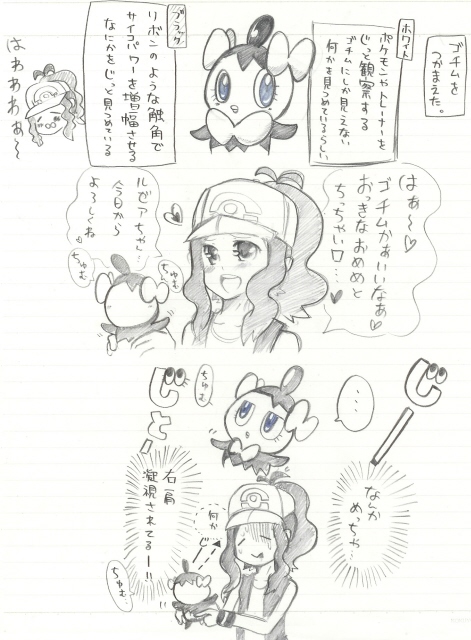 ゴチムを
つかまえた。
ホワイト
ポケモンやトレーナーを
じっと観察する
ゴチムにしか見えない
何かを見つめているらしい
ブラック
リボンのような触角で
サイコパワーを増幅させる
なにかをじっと見つめている
はわわわぁ〜
はぁ〜♡
ゴチムかぁいいなぁ♡
おっきなおめめと
ちっちゃい口…
♥
ルビアちゃ…
今日から
よろしくね
ちゅむ
ちゅむ
じーー
・・・
なんか
めっちゃ…
ちゅむ
じとー、
右肩
凝視されてるー!!
何か
じー
ちゅむ…